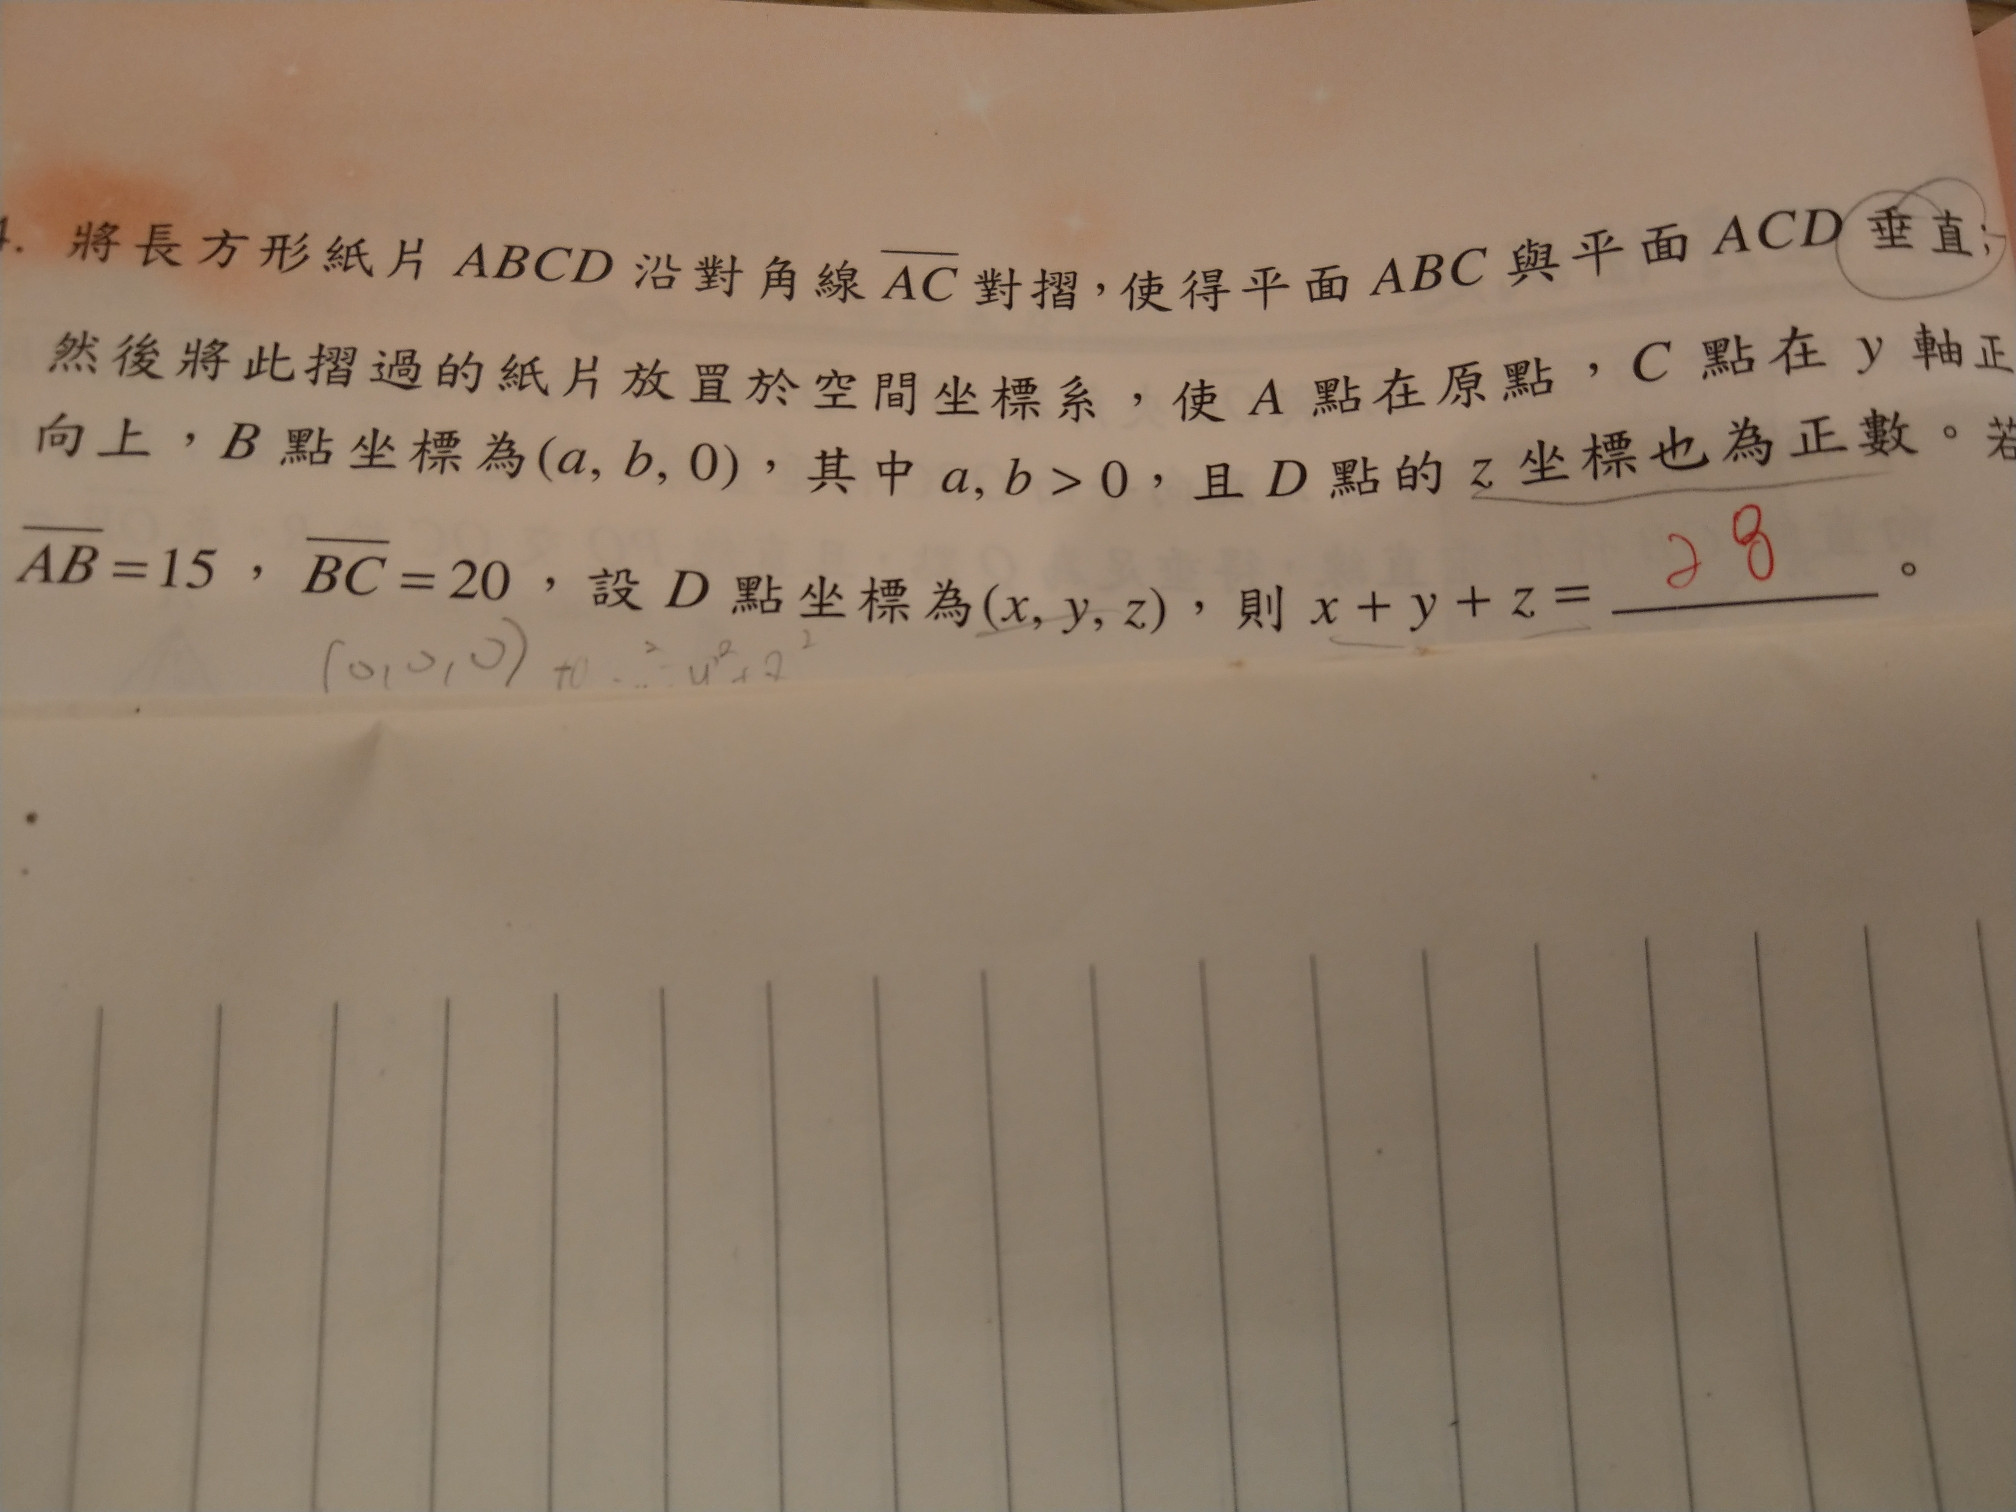 4. 將長方形紙片 ABCD 沿對角線 AC 對摺，使得平面 ABC 與平面 ACD 垂直；
然後將此摺過的紙片放置於空間坐標系，使 A 點在原點，C 點在 y 軸正
向上，B 點坐標為(a, b, 0)，其中 a, b > 0，且 D 點的 z 坐標也為正數。若
AB = 15，BC = 20，設 D 點坐標為(x, y, z)，則 x + y + z = 28。
(0,0,0)